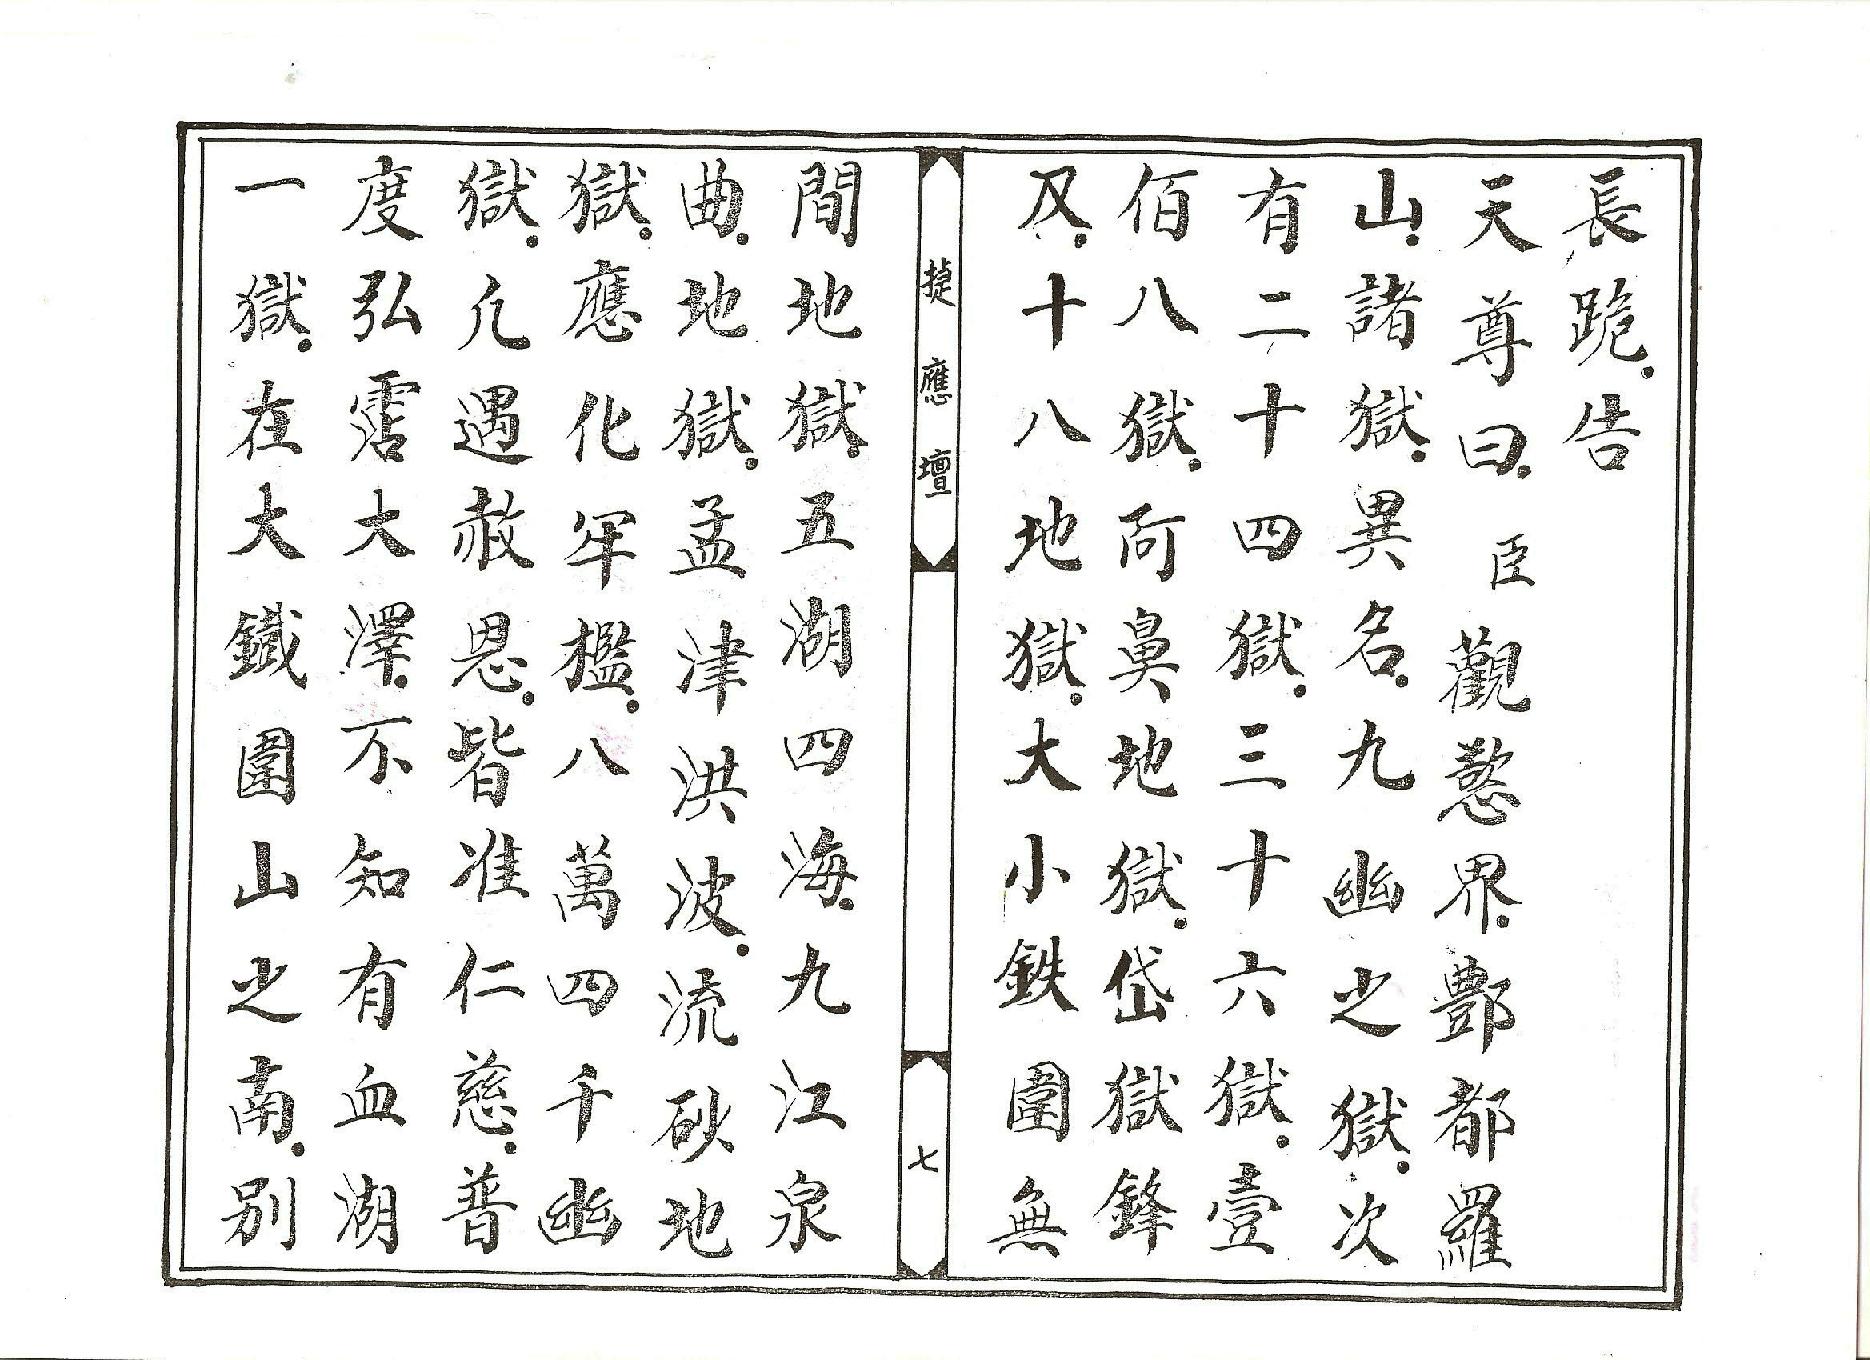 長跪.告
天尊曰.臣觀慾界.酆都羅
山.諸獄.異名.九幽之獄.次
有二十四獄.三十六獄.壹
佰八獄.阿鼻地獄.岱獄鋒
刄.十八地獄.大小鉄圍無
捷應壇
七
間地獄.五湖四海.九江泉
曲.地獄.孟津洪波.流砂地
獄.應化牢檻.八萬四千幽
獄.凢遇赦恩.皆准仁慈.普
度弘霑大澤.不知有血湖
一獄.在大鐵圍山之南.別